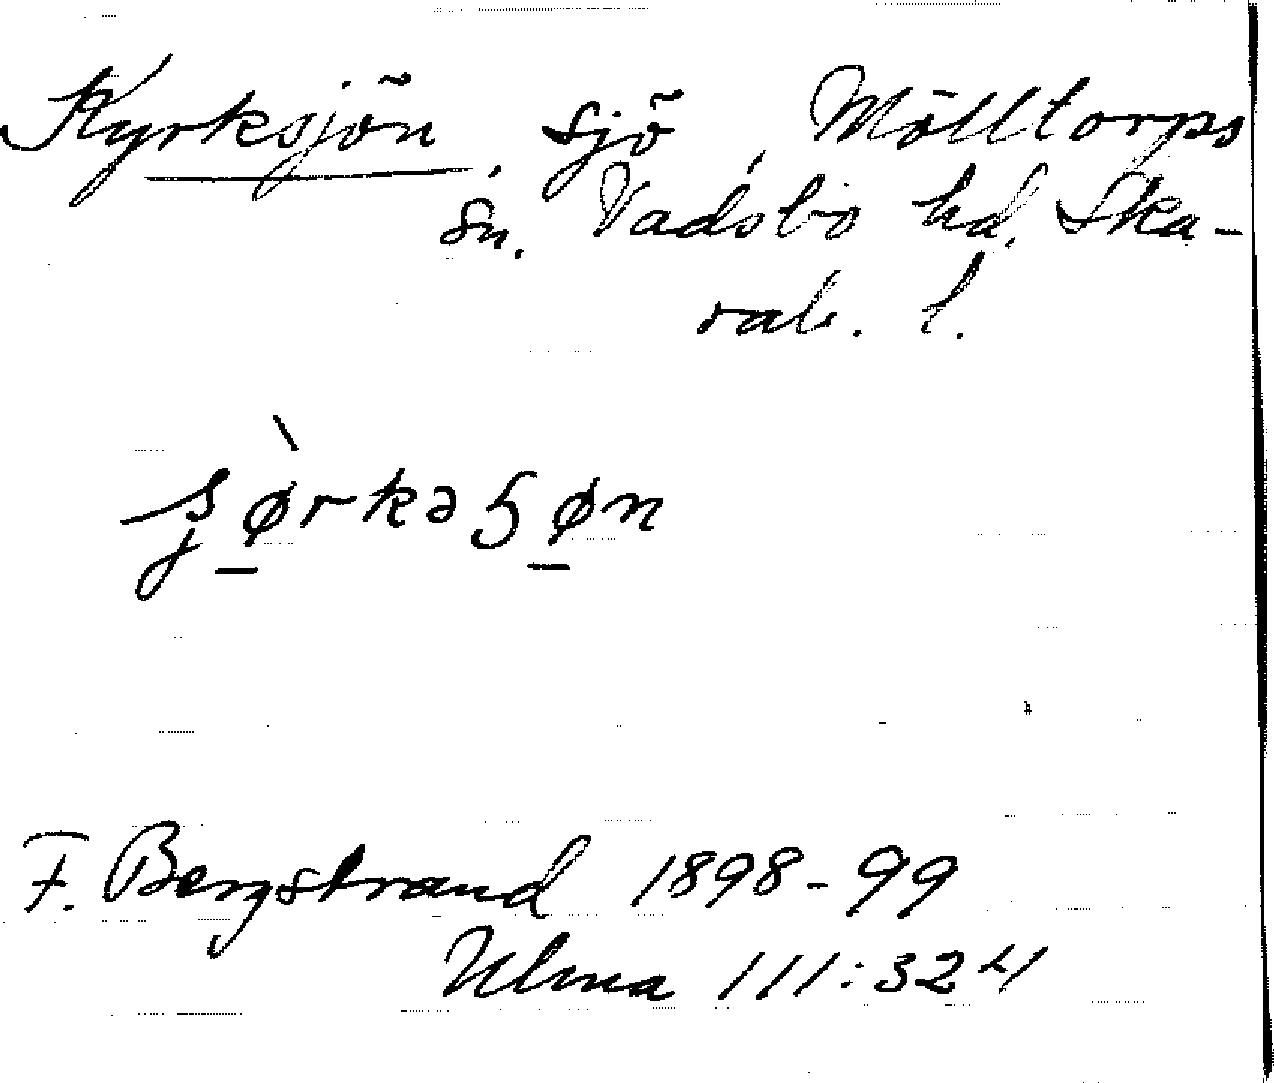 Kyrksjön, sjö, Mölltorps
sn. Vadsbo hd. Ska-
rab. l.
F. Bergstrand 1898-99
Ulma 111:324